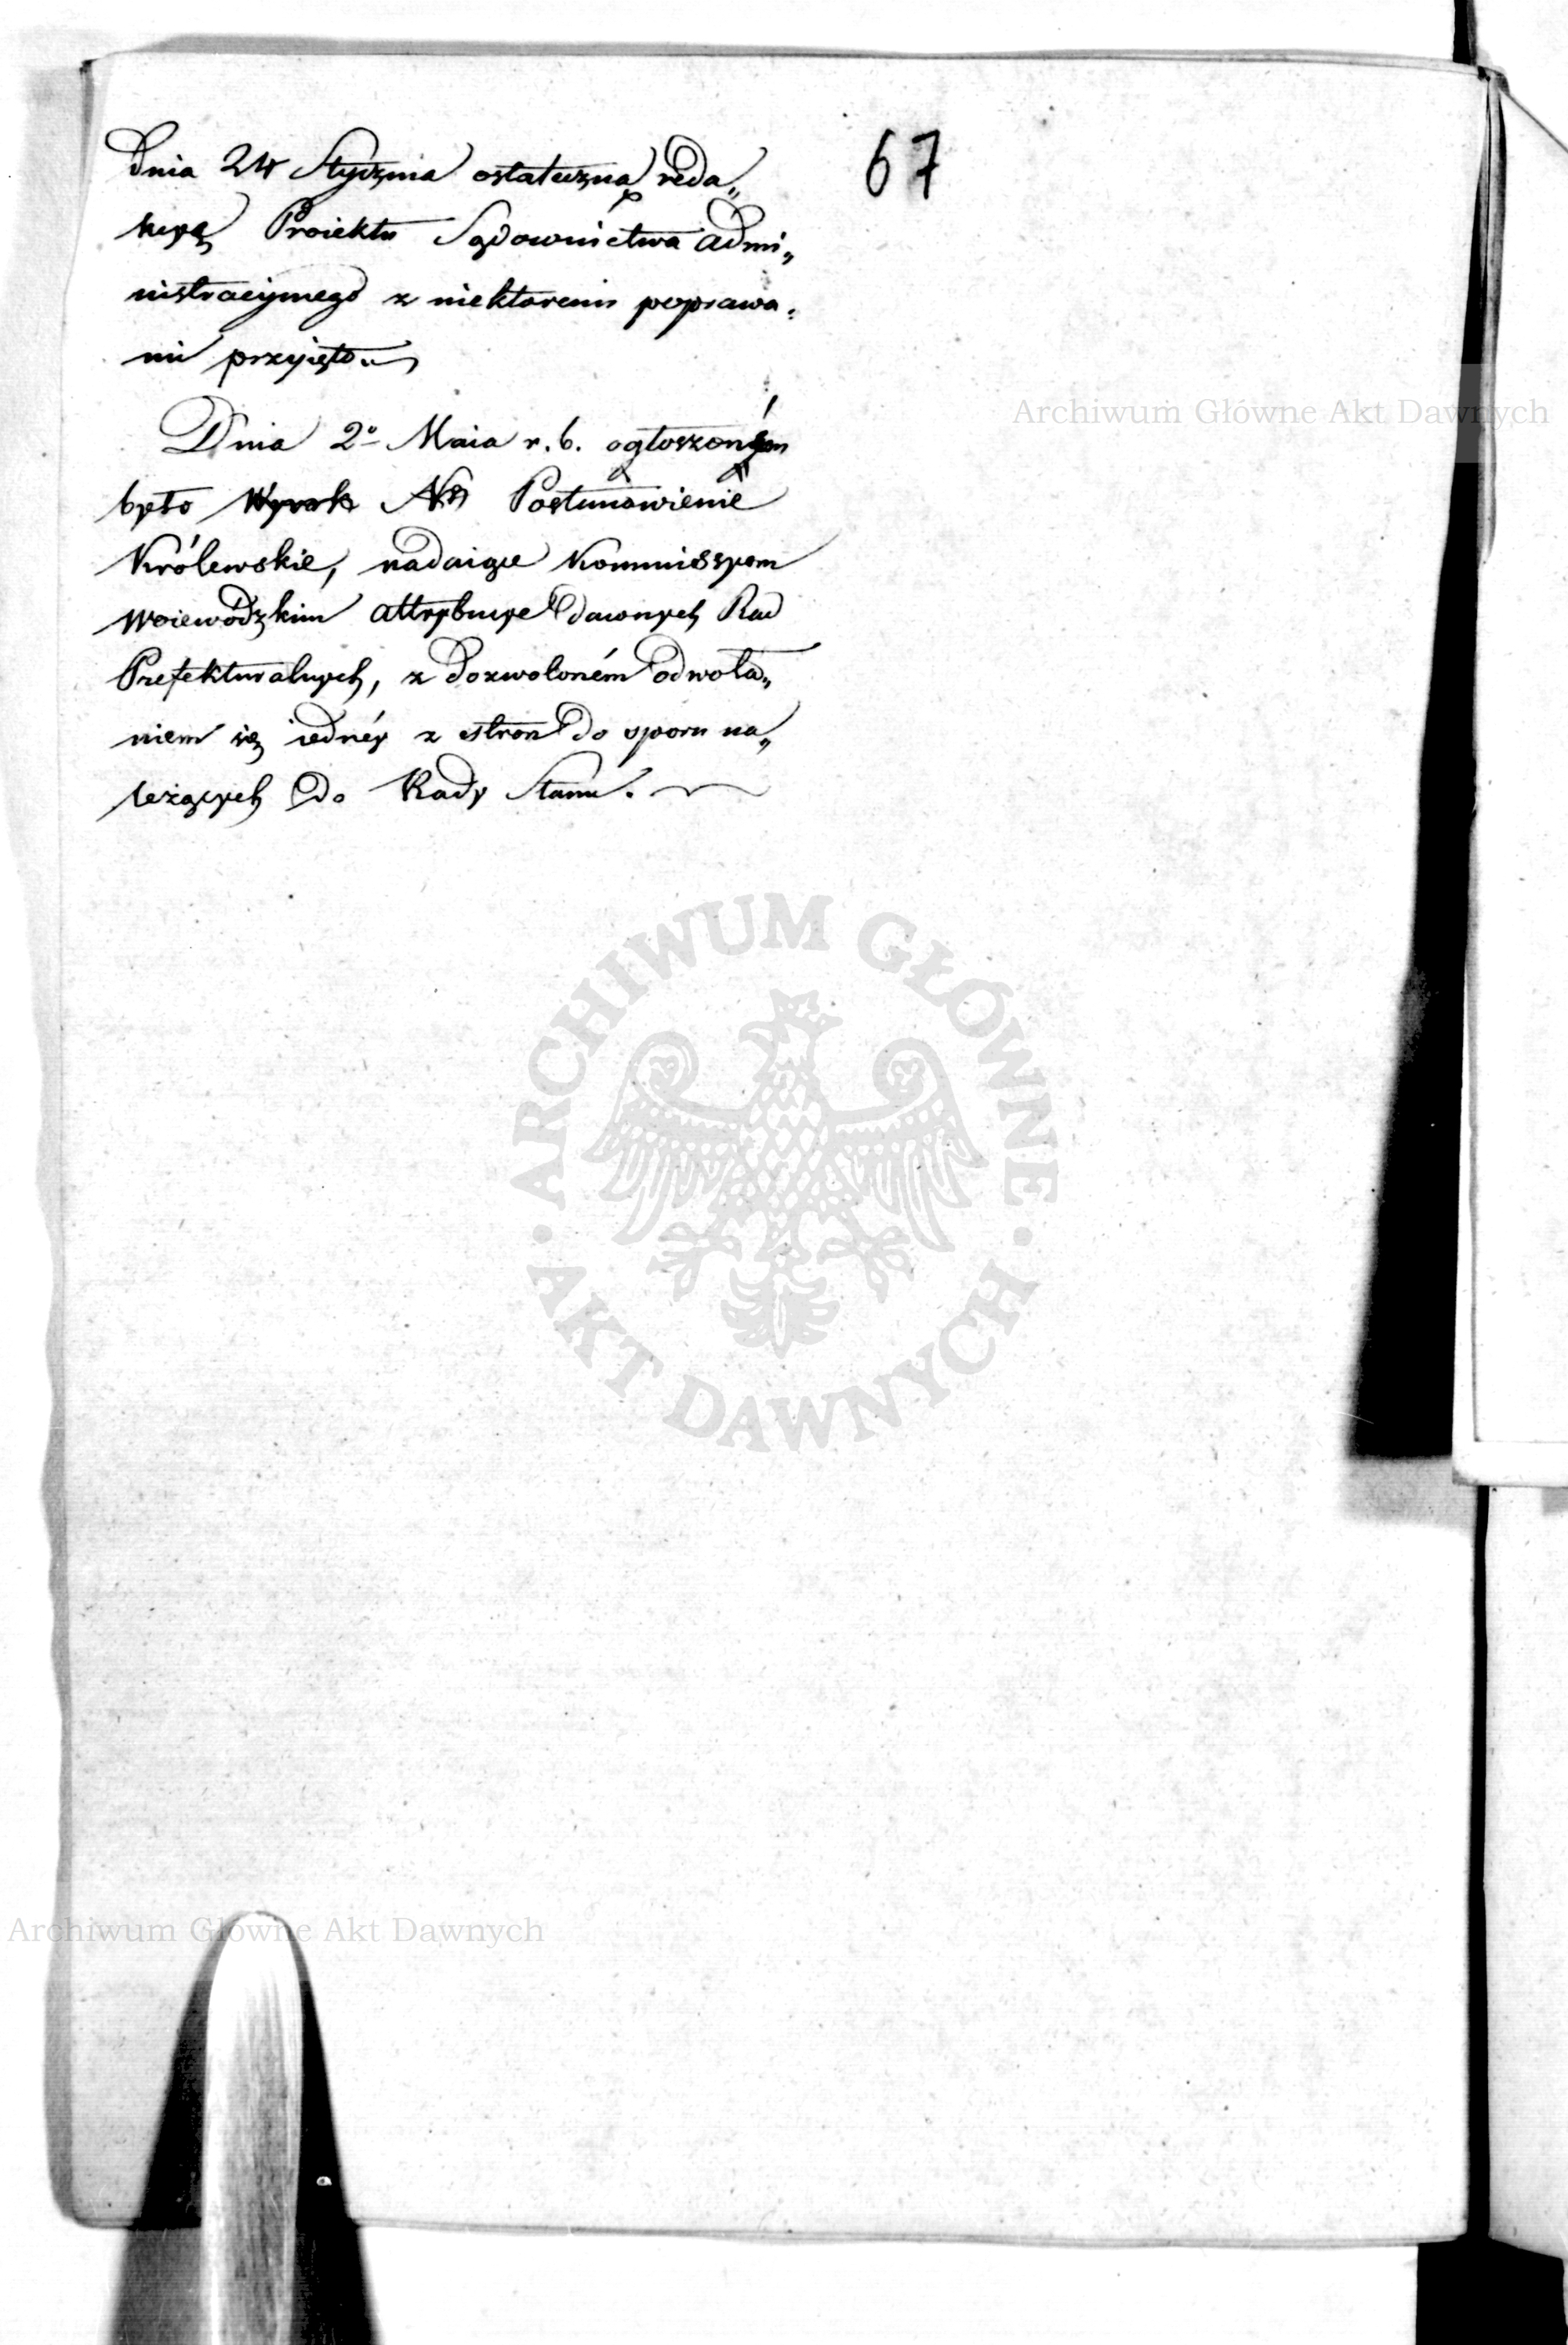 67
Dnia 24 Stycznia ostateczną reda„
kcyą Proiektu Sądownictwa admi„
nistracyjnego z niektoremi poprawa„
mi przyjęto.
Dnia 2º Maia r. b. ogłoszoném
było Wyrok Postanowienie
Królewskie, nadaiące Kommissyom
Woiewódzkim attrybucye dawnych Rad
Prefekturalnych, z dozwoloném odwoła„
niem się iednéy z stron do sporu na„
leżących do Rady Stanu.
Archiwum Główne Akt Dawnych
ARCHIWUM GŁÓWNE
· AKT DAWNYCH ·
Archiwum Główne Akt Dawnych